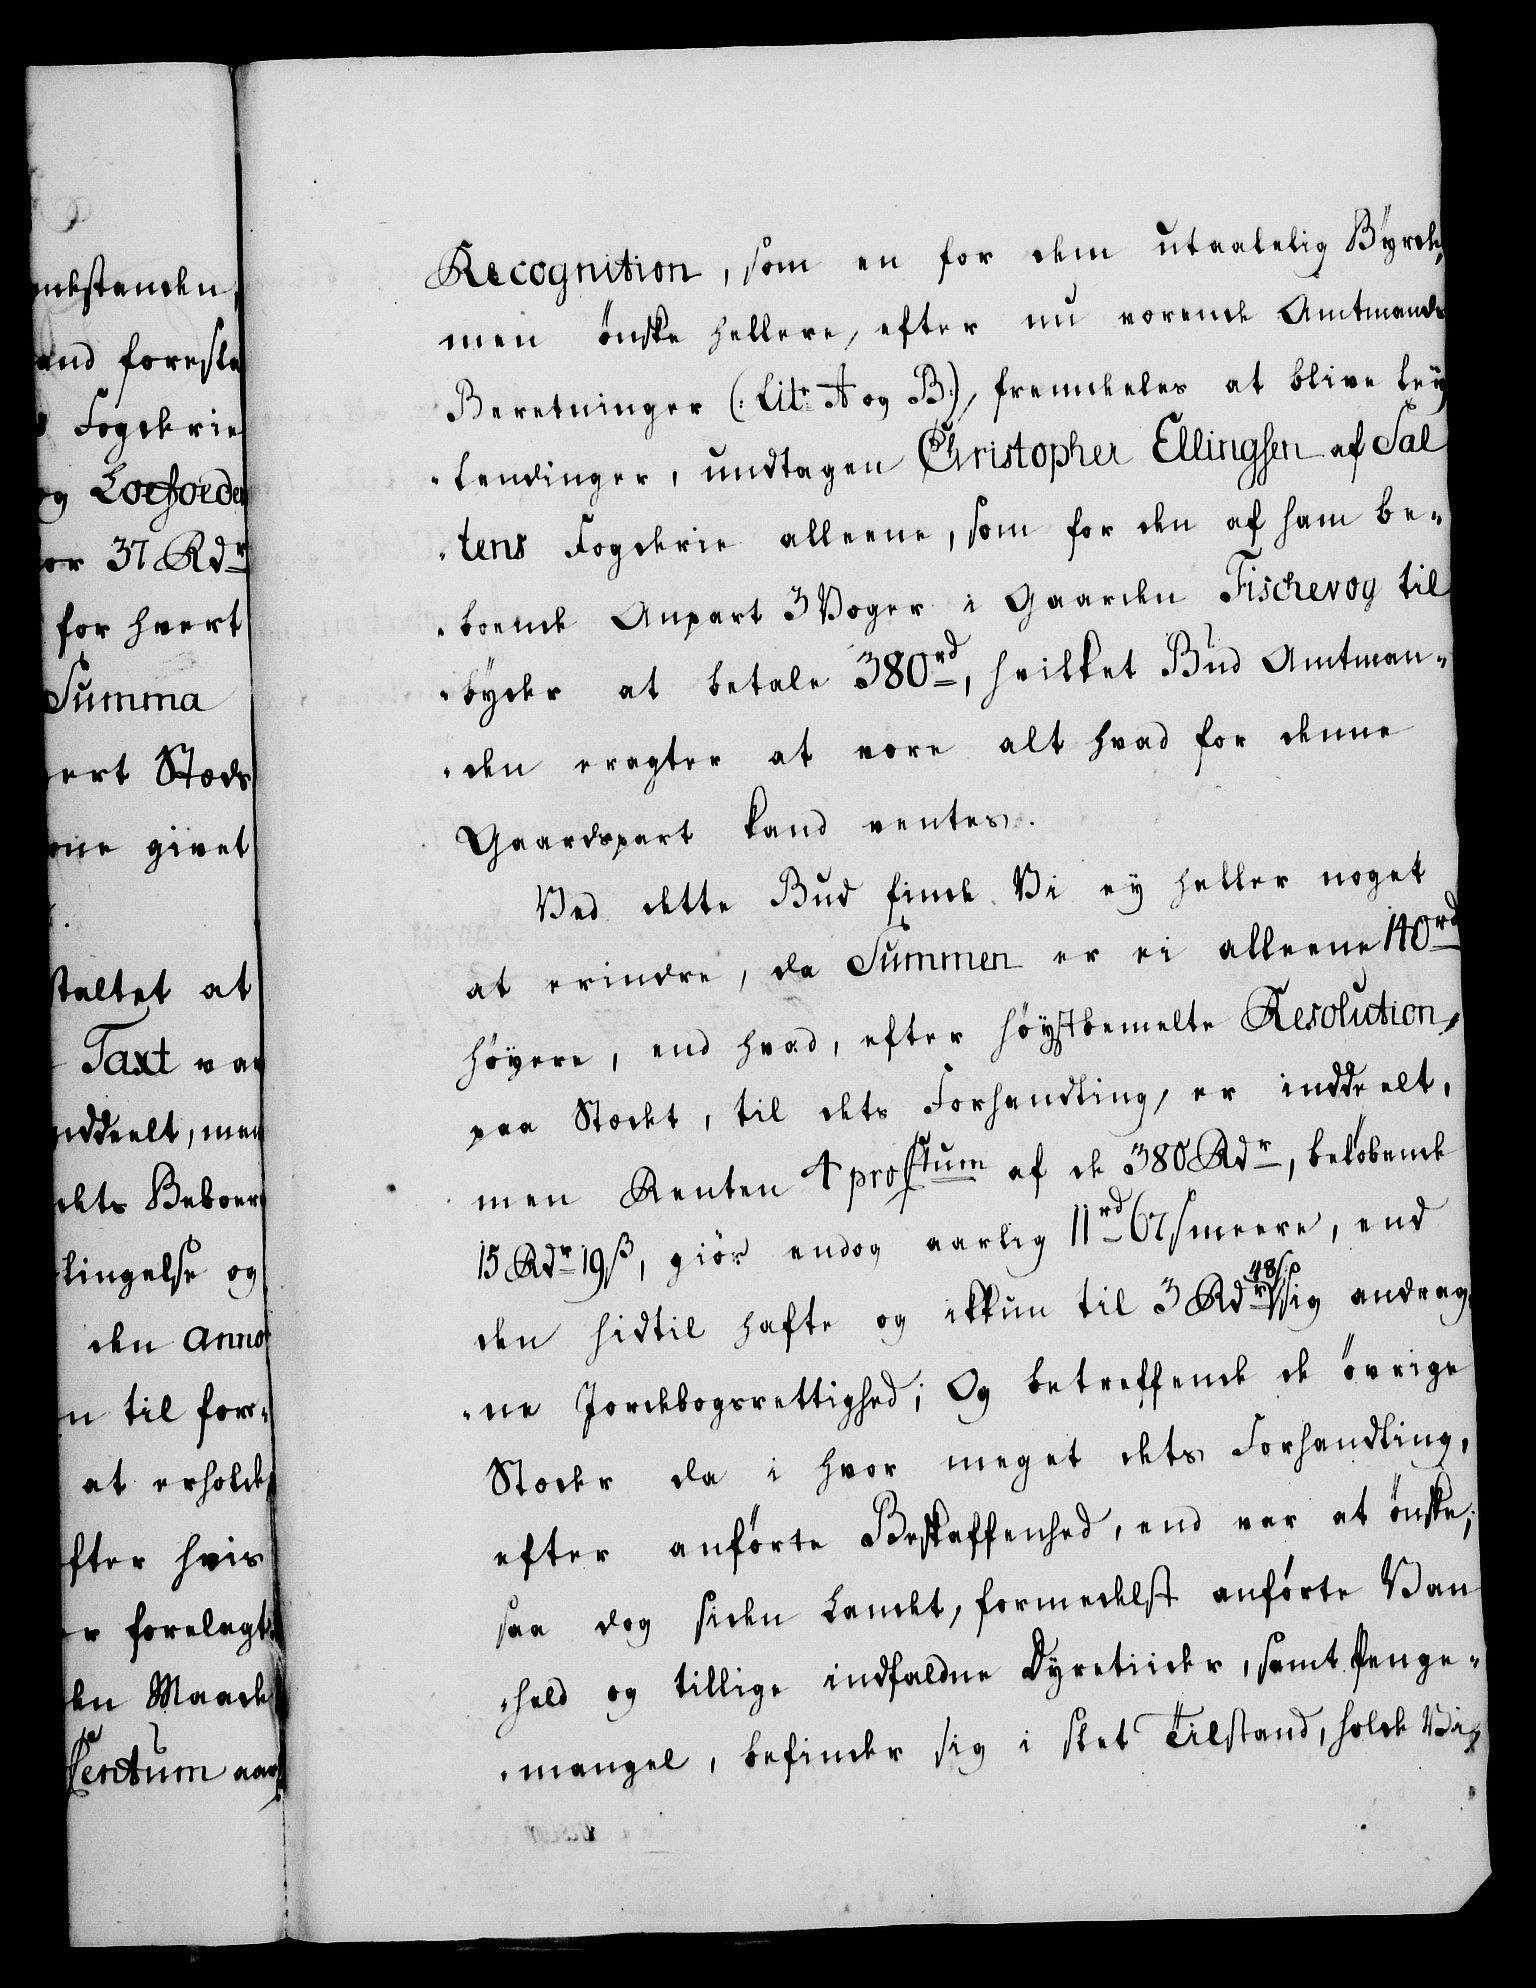 mdstanden,
and foresla
Fogderie
og Loefoede
or 37 Rdr
for hvert
Summa
ert Stæds
ne givet
staltet at
Taxt var
nddeelt, men
dets Beboer
lingelse og
den Anno
n til for-
at erholde
fter hvis
r forelagt
den Maade
Centum aar
Recognition, som en for dem utaalelig Byrde,
men ønske hellere, efter nu værende Amtmands
Beretninger (: Litr A og B:), fremdeles at blive Ley
-lendinger, undtagen Christopher Ellingsen af Sal
-tens Fogderie alleene, som for den af ham be-
-boende Anpart 3 Voger i Gaarden Fischevog til
-byder at betale 380rd, hvilket Bud Amtman-
-den eragter at være alt hvad for denne
Gaardspart kand ventes.
Ved dette Bud finde Vi ey heller noget
at erindre, da Summen er ei alleene 140rd
høyere, end hvad, efter høystbemelte Resolution,
paa Stædet, til dets Forhandling, er inddeelt,
men Renten 4 pro Ctum af de 380 Rdr, beløbende
15 Rdr 19 ß, giør endog aarlig 11rd 67 ß meere, end
den hidtil hafte og ikkun til 3 Rdr 48 ß sig andrag
-ne Jordebogsrettighed; Og betreffende de øvrige
Stæder da i hvor meget dets Forhandling,
efter anførte Beskaffenhed, end var at ønske;
saa dog siden Landet, formedelst anførte Van
-held og tillige indfaldne Dyretiider, samt Penge-
-mangel, befinder sig i slet Tilstand, holde Vi